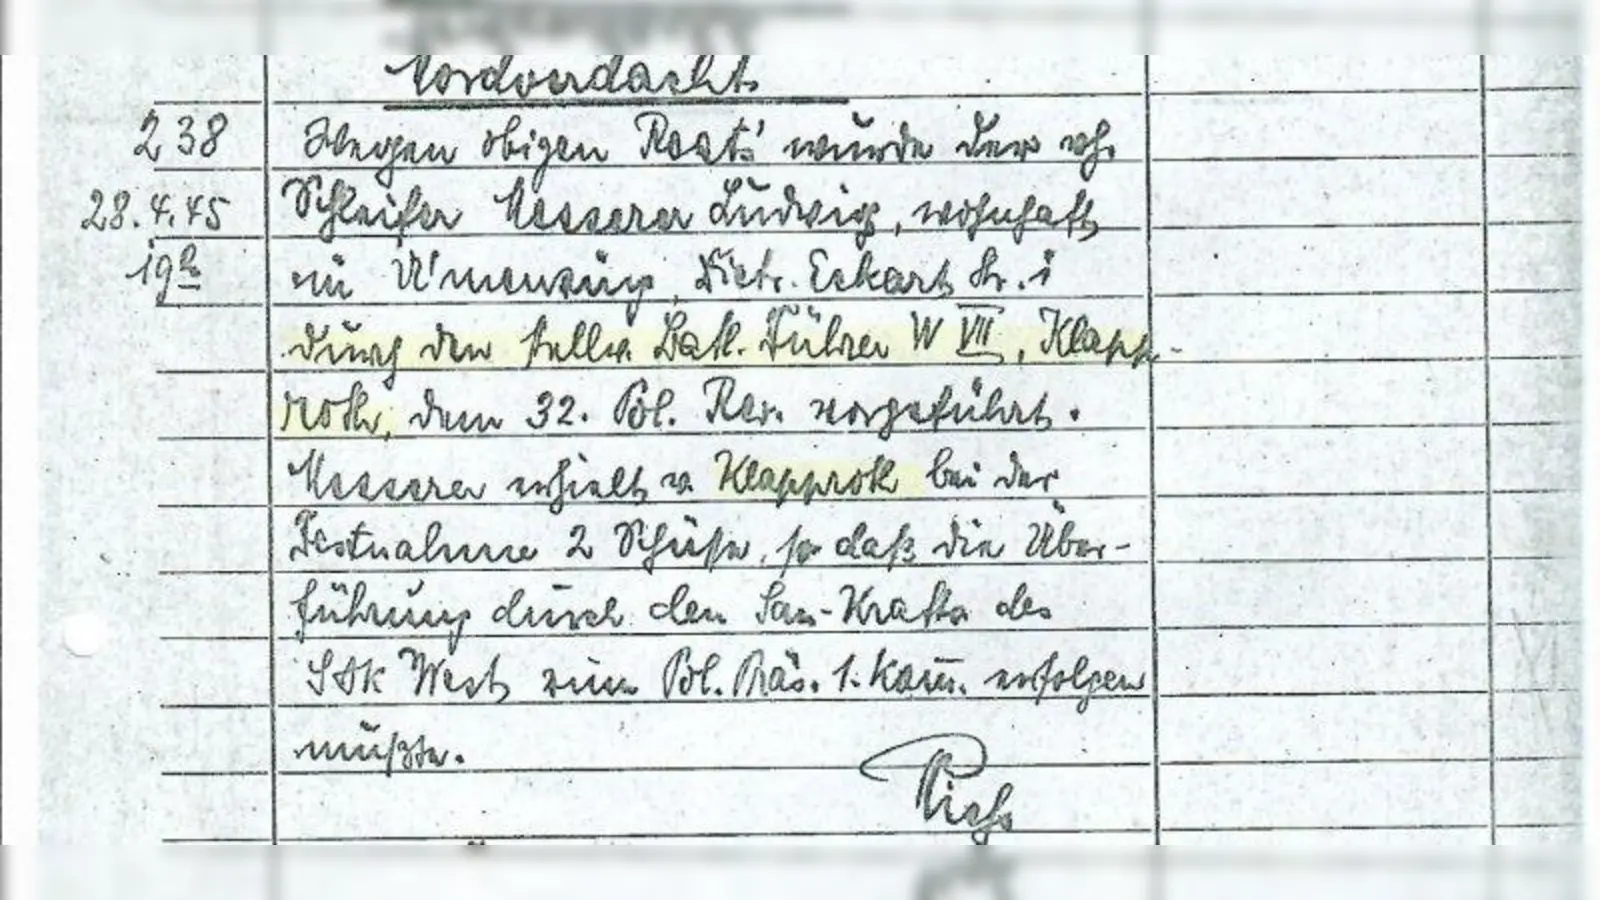 Mordverdacht
238 Wegen obigen Betr. wurde der vh.
28.4.45 Schleifer Messerer Ludwig, wohnhaft
19h in U'menzing, Dietr. Eckart Str.
durch den stellv. Batl. Führer W VII, Klapp-
roth, dem 32. Pol. Rev. vorgeführt.
Messerer erhielt v. Klapproth bei der
Festnahme 2 Schüße, so daß die Über-
führung durch den San-Krafta des
West zum Pol. Präs. 1. Komm. erfolgen
mußte.